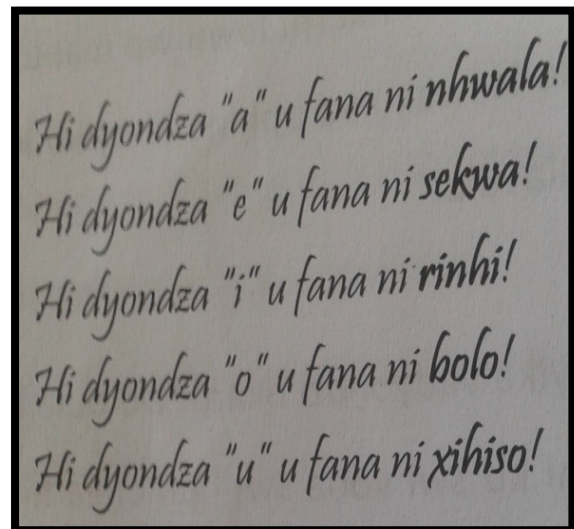 Hi dyondza "a" u fana ni nhwala!
Hi dyondza "e" u fana ni sekwa!
Hi dyondza "i" u fana ni rinhi!
Hi dyondza "o" u fana ni bolo!
Hi dyondza "u" u fana ni xihiso!